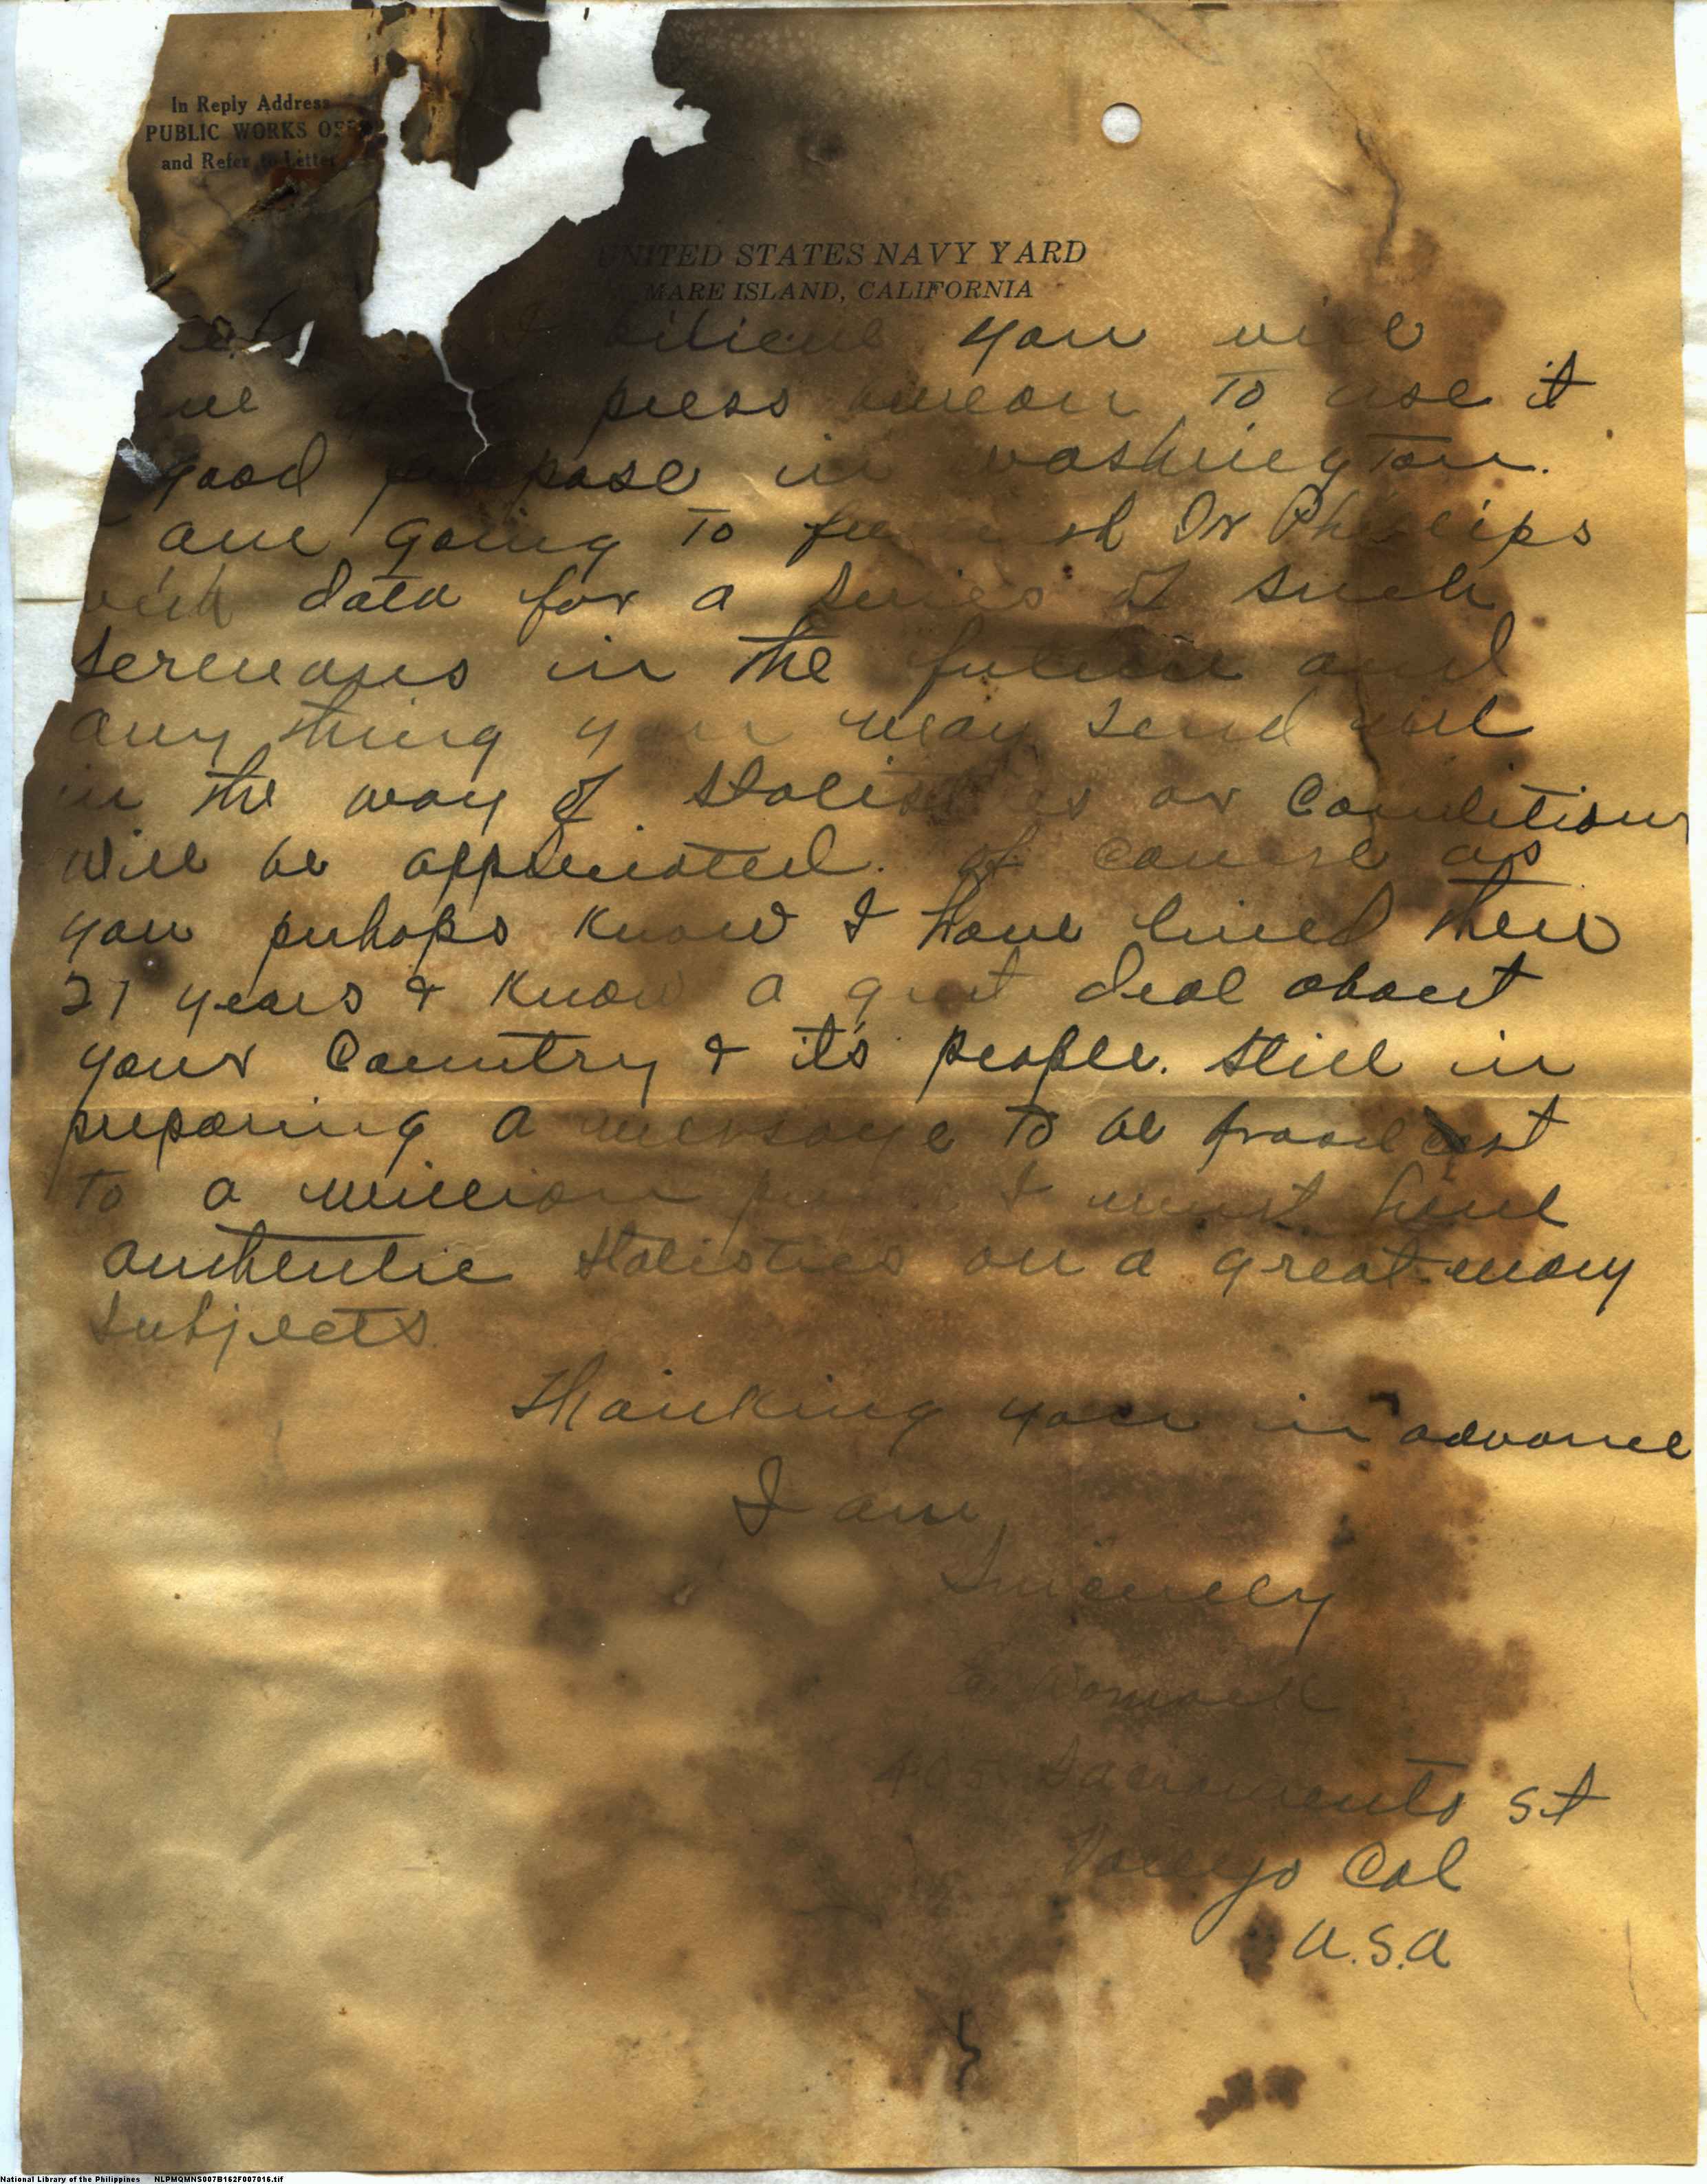 In Reply Address
PUBLIC WORKS
and Refer to Letter
UNITED STATES NAVY YARD
MARE ISLAND, CALIFORNIA
I believe you will
press bureau to use it
good purpose in Washington.
am going to furnish Dr Phillips
with data for a series of such
sermons in the future and
any thing you may send me
in the way of statistics or conditions
will be appreciated. Of course as
you perhaps know I have lived there
21 years & know a great deal about
your country & it's people. Still in
preparing a message to be broadcast
to a million I must have
authentic statistics on a great many
subjects.
Thanking you in advance
I am
Sincerely
Womack
405 Sacramento St
Vallejo Cal
U.S.A
National Library of the Philippines NLPMQMNS007B162F007016.tif